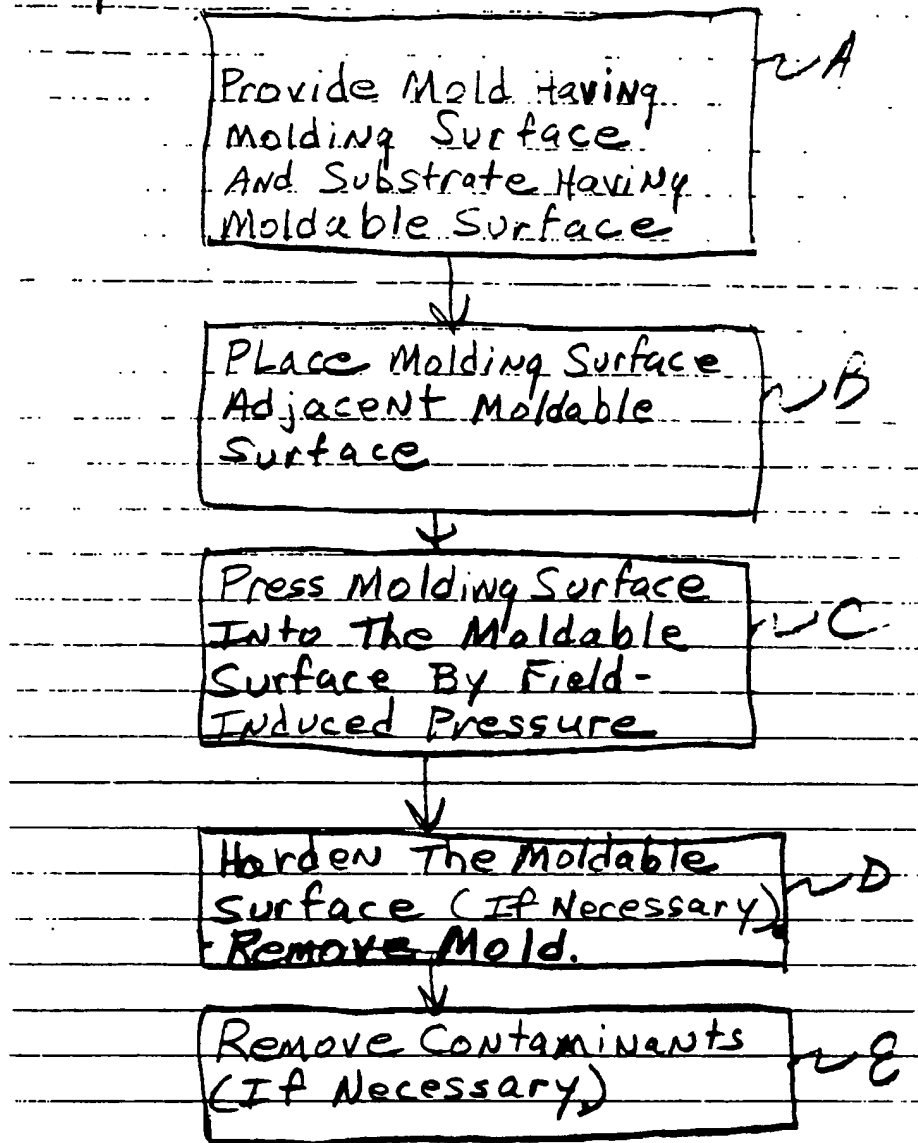 Provide Mold Having A
Molding Surface
And Substrate Having
Moldable Surface
Place Molding Surface
Adjacent Moldable B
Surface
Press Molding Surface
Into The Moldable C
Surface By Field-
Induced Pressure
Harden The Moldable
Surface (If Necessary). D
Remove Mold.
Remove Contaminants
(If Necessary) E